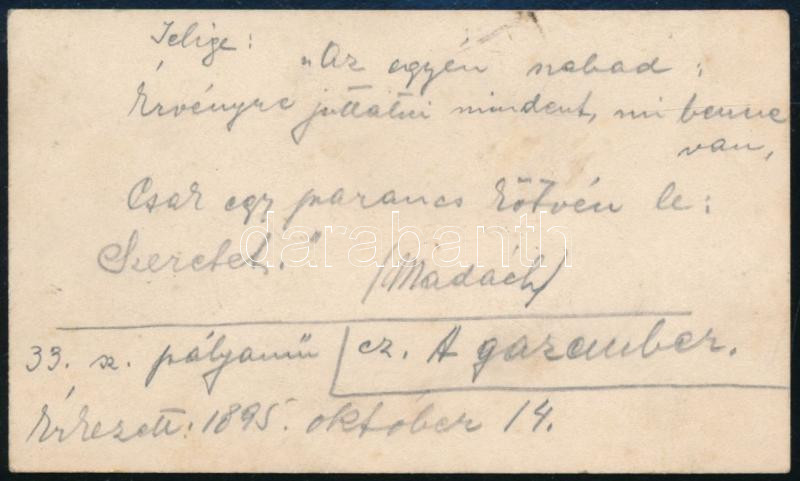 Jelige:
"Az egyén szabad:
Érvényre juttatni mindent, mi benne
van,
Csak egy parancs kötvén le:
Szeretet."
(Madách)
33. sz. pályamű cz. A gazember.
Érkezett: 1895. október 14.
darabanth